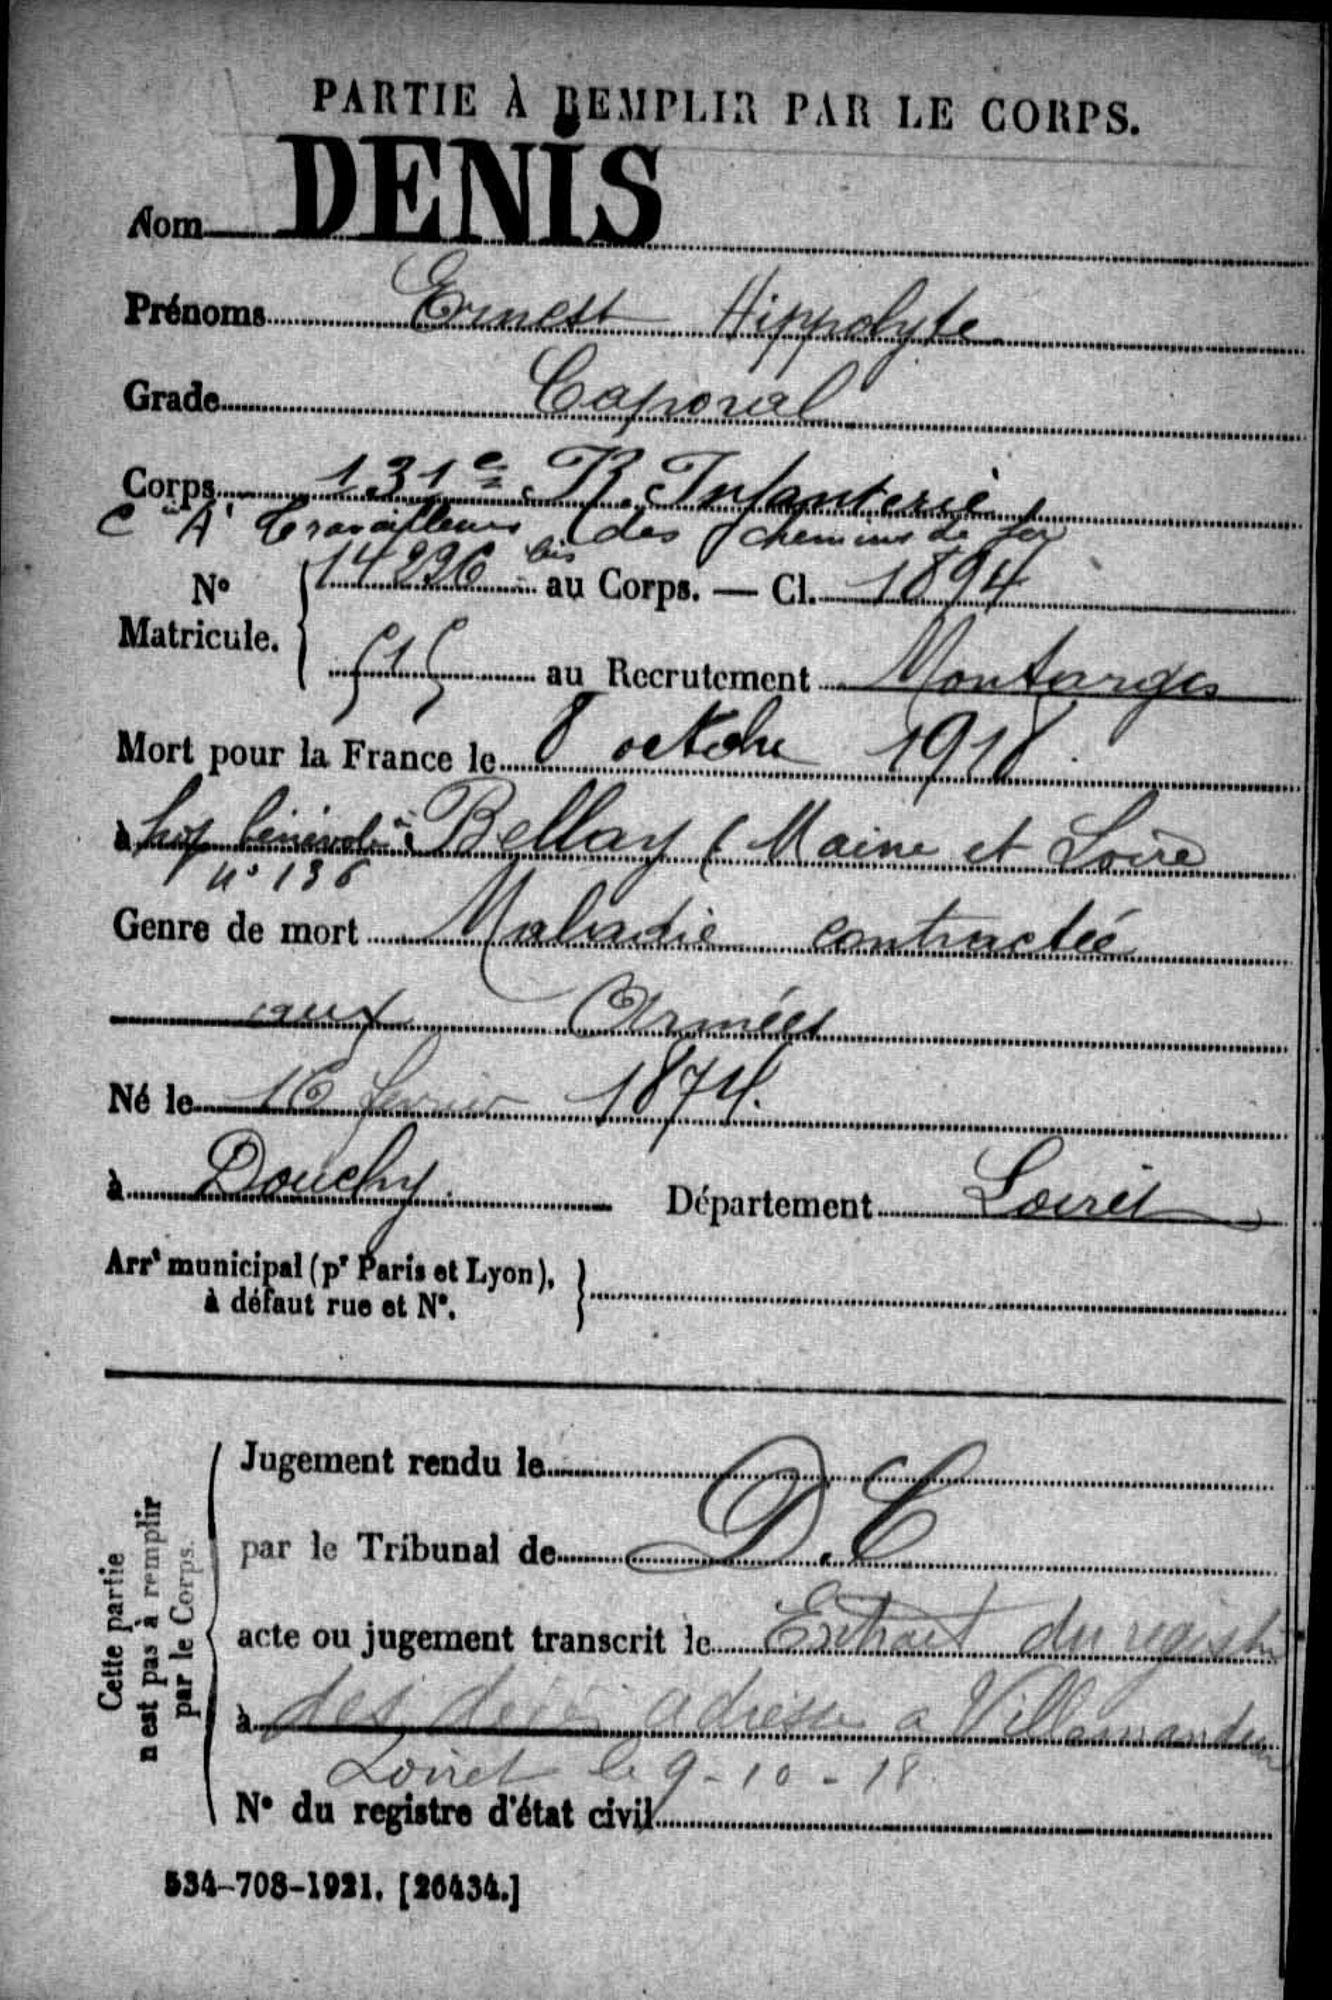 PARTIE À REMPLIR PAR LE CORPS.
Nom DENIS
Prénoms Ernest Hippolyte
Grade Caporal
Corps 131e R. Infanterie
Cie A Travailleurs des chemins de fer
No Matricule. { 14296 bis au Corps. — Cl. 1894
515 au Recrutement Montargis
Mort pour la France le 8 octobre 1918
à hop bénévole Bellay (Maine et Loire
no 136
Genre de mort Maladie contractée
aux Armées
Né le 16 février 1874.
à Douchy. Département Loiret
Arrt municipal (pr Paris et Lyon), à défaut rue et No. }
Cette partie n'est pas à remplir par le Corps.
Jugement rendu le
par le Tribunal de D. C
acte ou jugement transcrit le Extrait du registre
à des décès adressé à Villemandeur
Loiret le 9-10-18.
No du registre d'état civil
534-708-1921. [26434.]